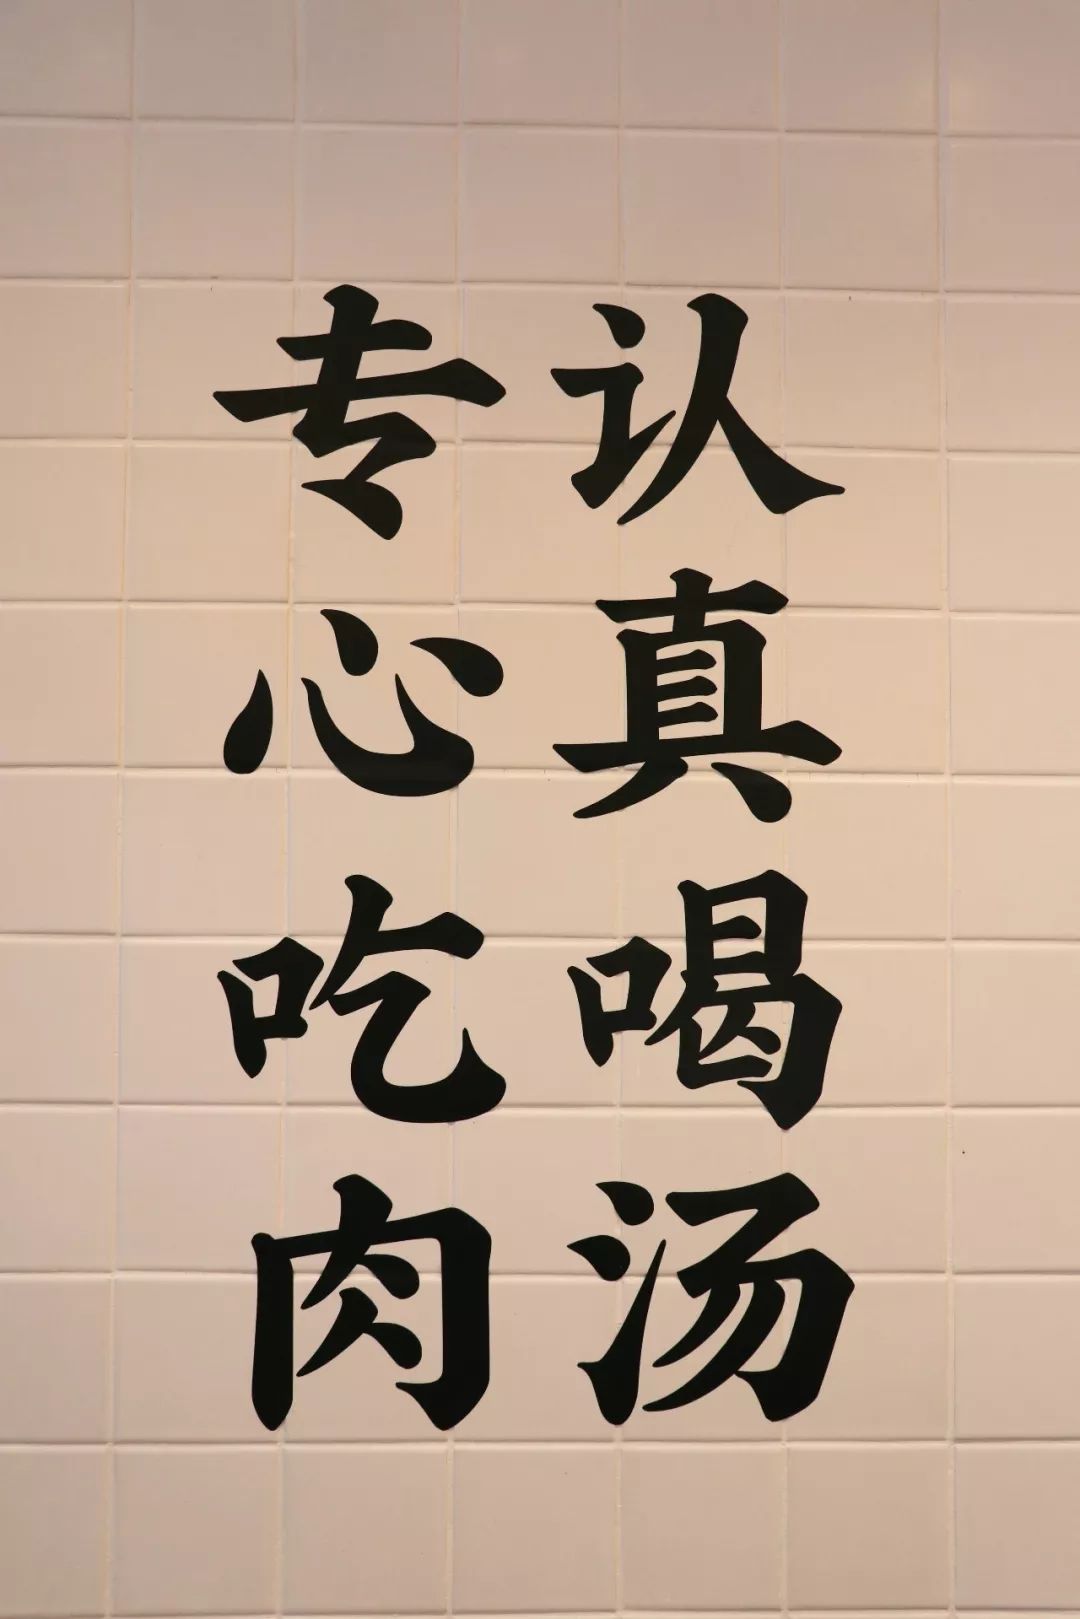 认真喝汤
专心吃肉